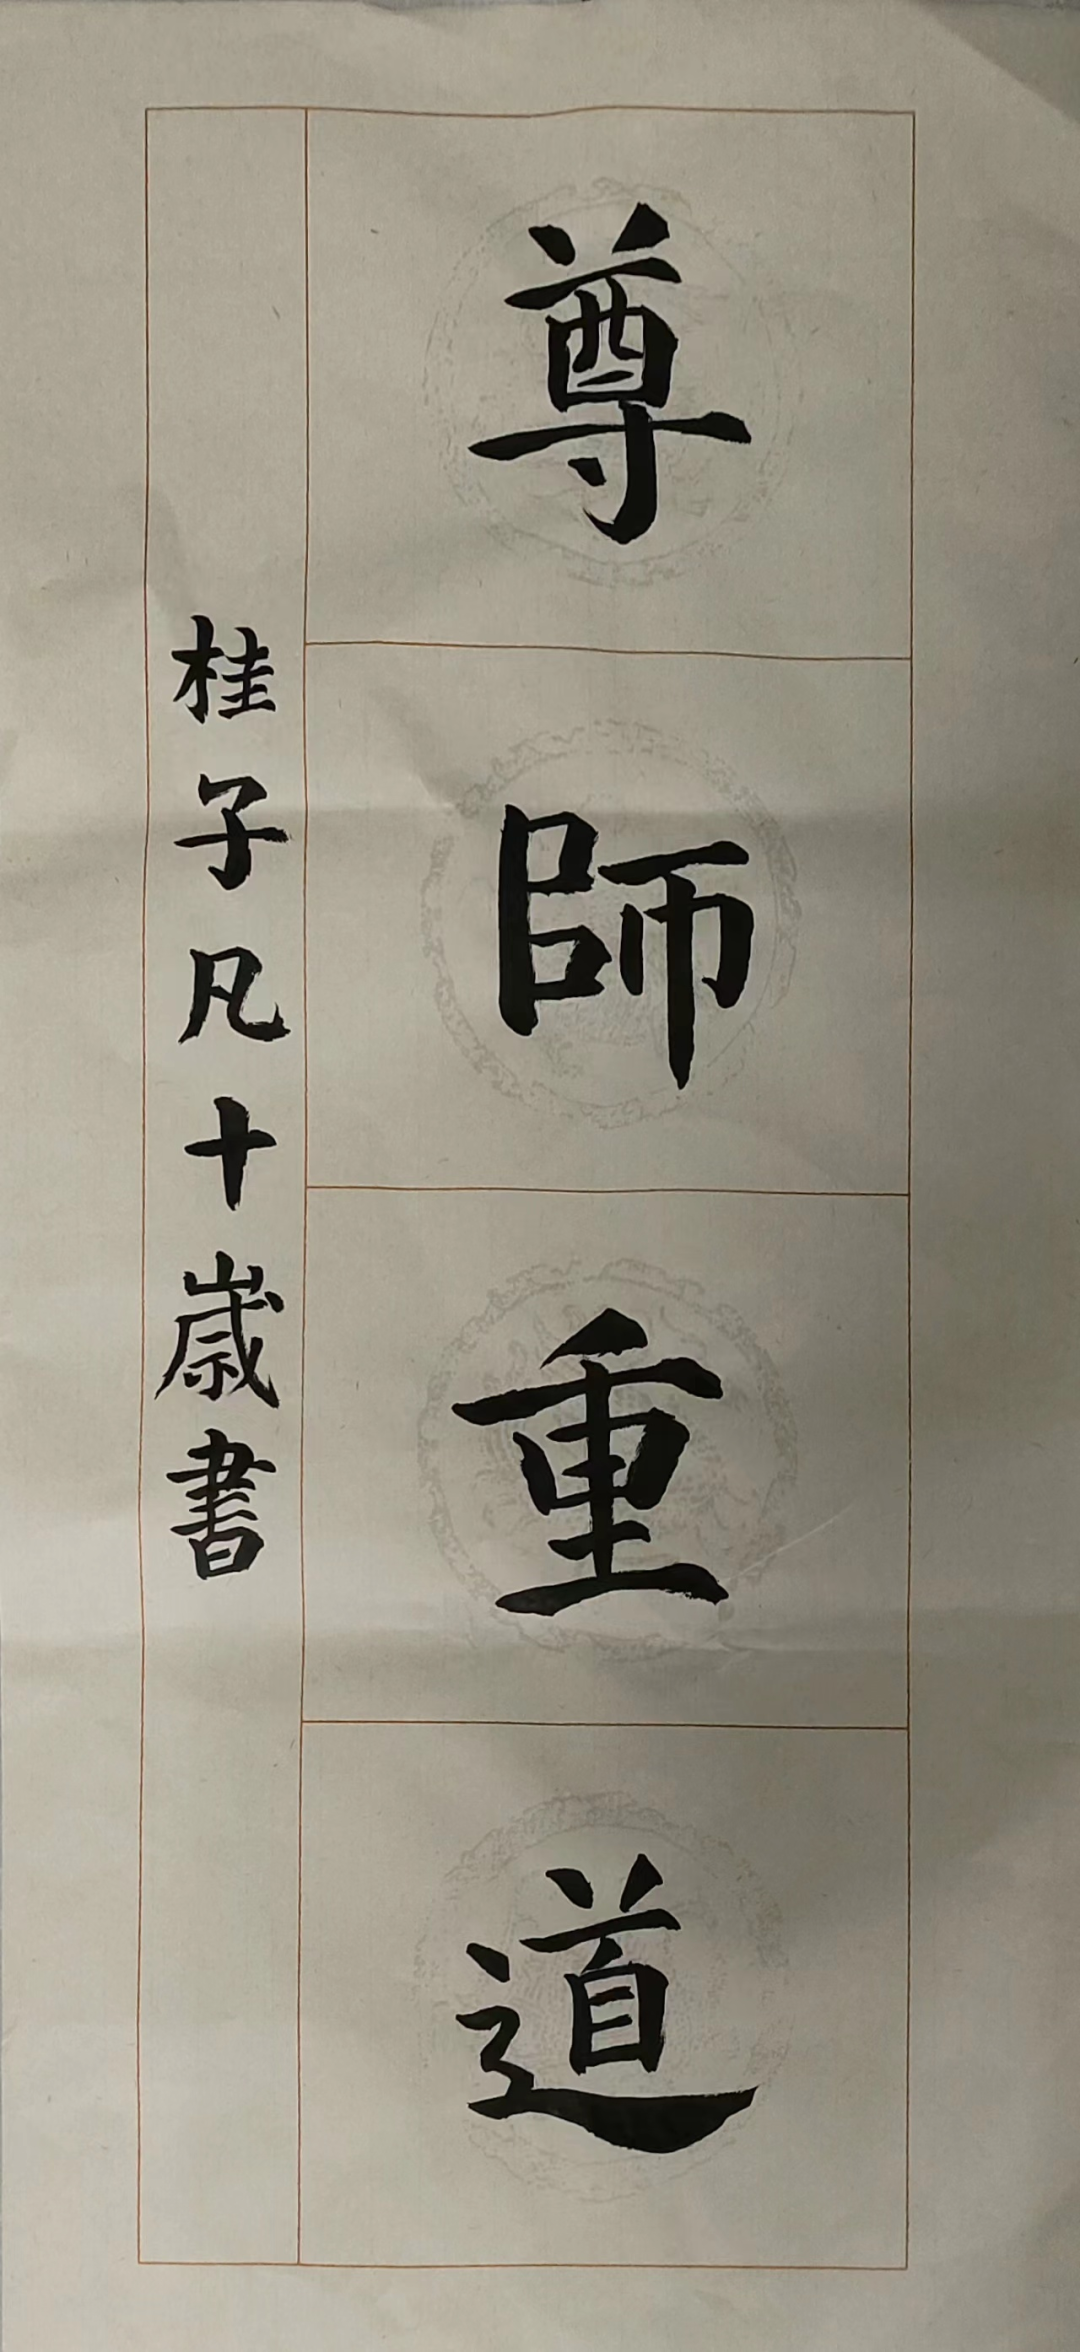 尊師重道
桂子凡十歲書